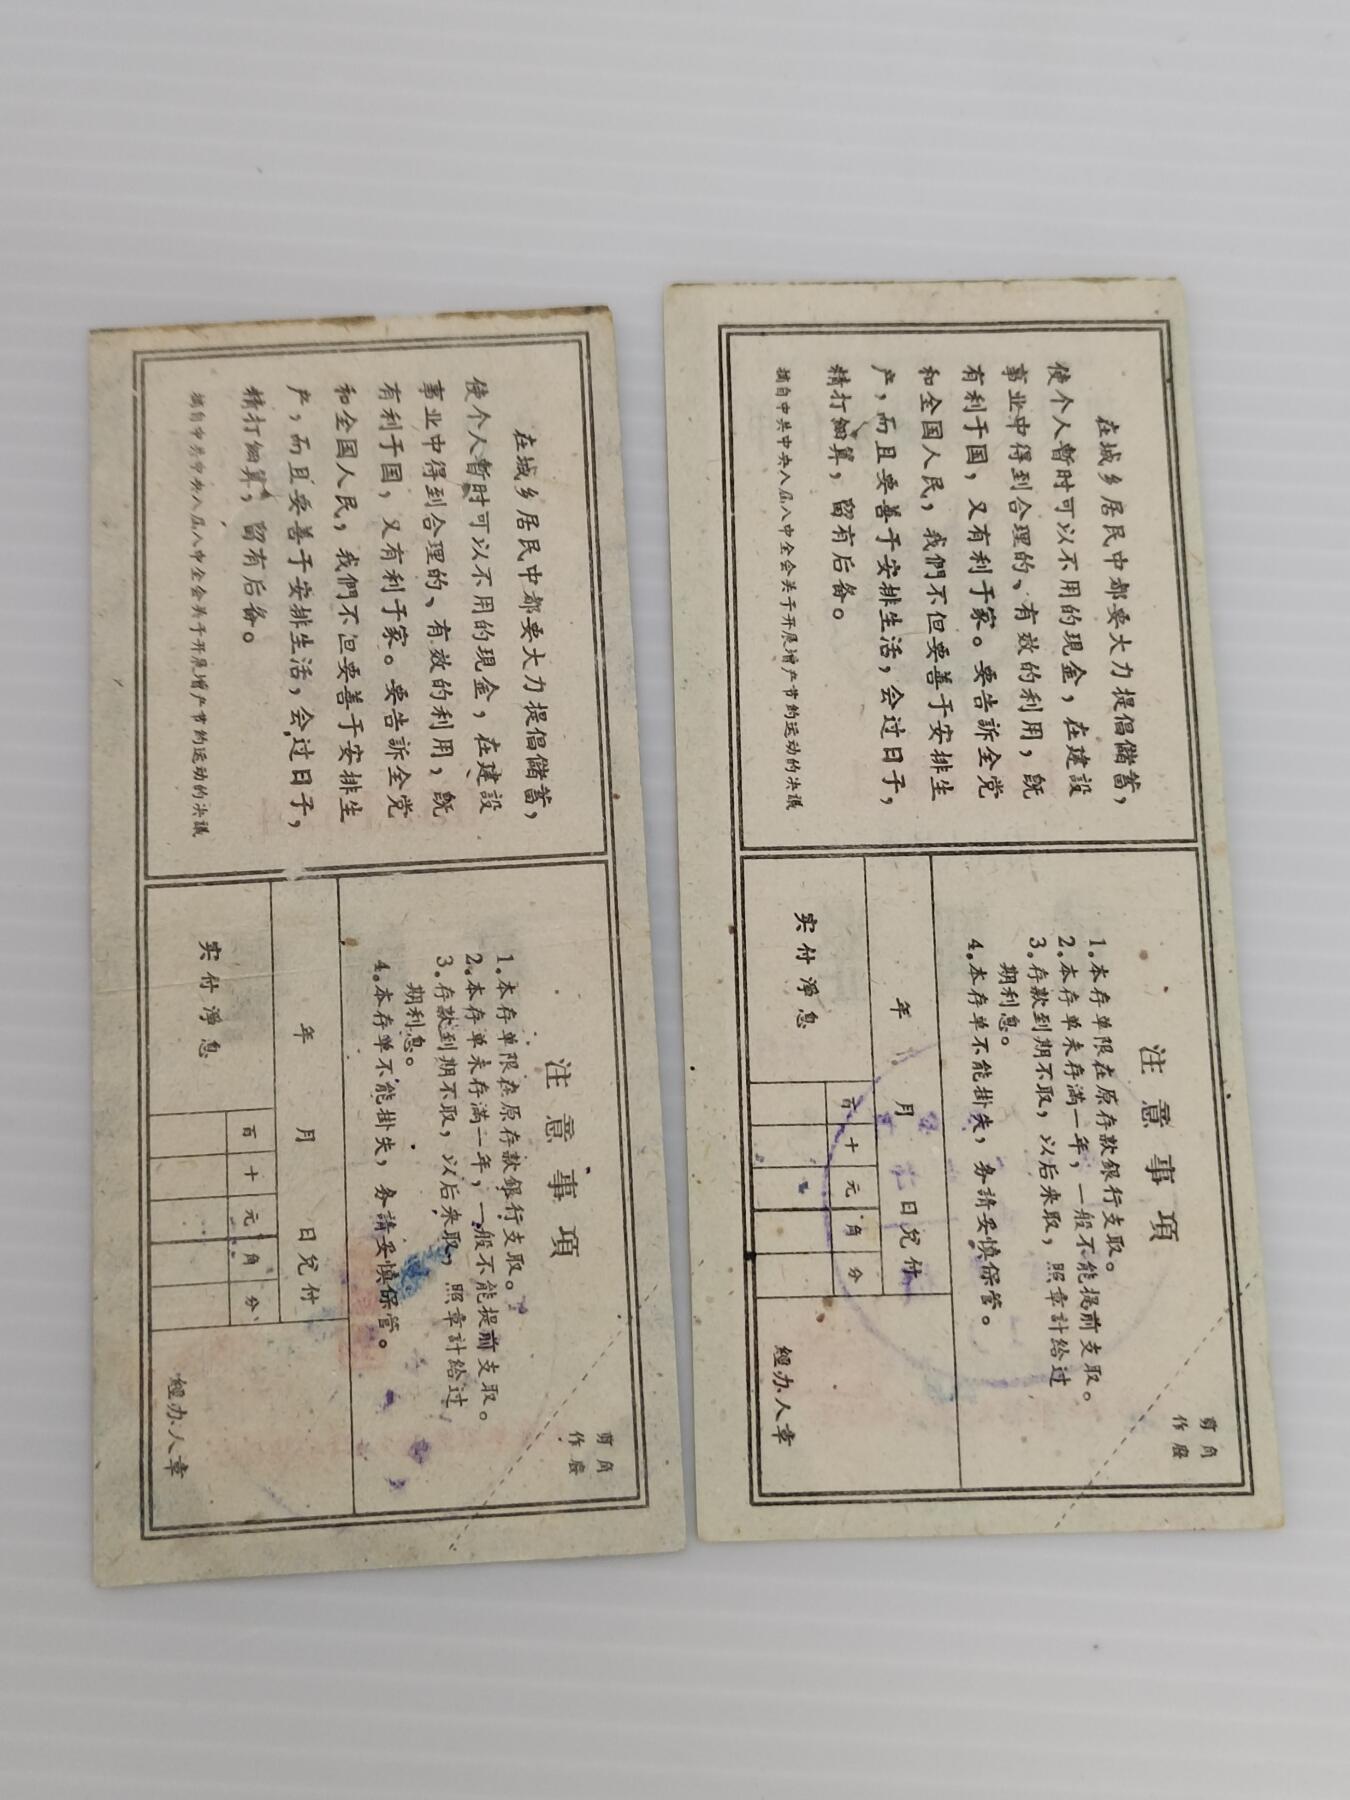 在城乡居民中都要大力提倡儲蓄，
使个人暫时可以不用的现金，在建設
事业中得到合理的、有效的利用，既
有利于国，又有利于家。要告訴全党
和全国人民，我們不但要善于安排生
产，而且要善于安排生活，会过日子，
精打細算，留有后备。
摘自中共中央八届八中全会关于开展增产节約运动的决議
注意事項
1.本存单限在原存款銀行支取。
2.本存单未存滿一年，一般不能提前支取。
3.存款到期不取，以后来取，照章計給过
期利息。
4.本存单不能掛失，务請妥慎保管。
年 月 日兌付
实付淨息
百 十 元 角 分
經办人章
剪角
作廢
在城乡居民中都要大力提倡儲蓄，
使个人暫时可以不用的现金，在建設
事业中得到合理的、有效的利用，既
有利于国，又有利于家。要告訴全党
和全国人民，我們不但要善于安排生
产，而且要善于安排生活，会过日子，
精打細算，留有后备。
摘自中共中央八届八中全会关于开展增产节約运动的决議
注意事項
1.本存单限在原存款銀行支取。
2.本存单未存滿一年，一般不能提前支取。
3.存款到期不取，以后来取，照章計給过
期利息。
4.本存单不能掛失，务請妥慎保管。
年 月 日兌付
实付淨息
百 十 元 角 分
經办人章
剪角
作廢